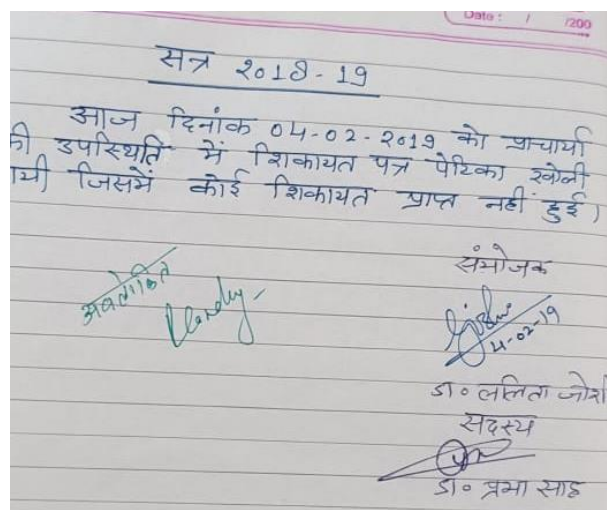 Date : / /200
सत्र २०१८-19
आज दिनांक 04-02-2019 को प्राचार्या
की उपस्थिति में शिकायत पत्र पेटिका खोली
गयी जिसमें कोई शिकायत प्राप्त नहीं हुई।
संयोजक
अवलोकित
4-02-19
डा० ललिता जोशी
सदस्य
डा० प्रभा साह